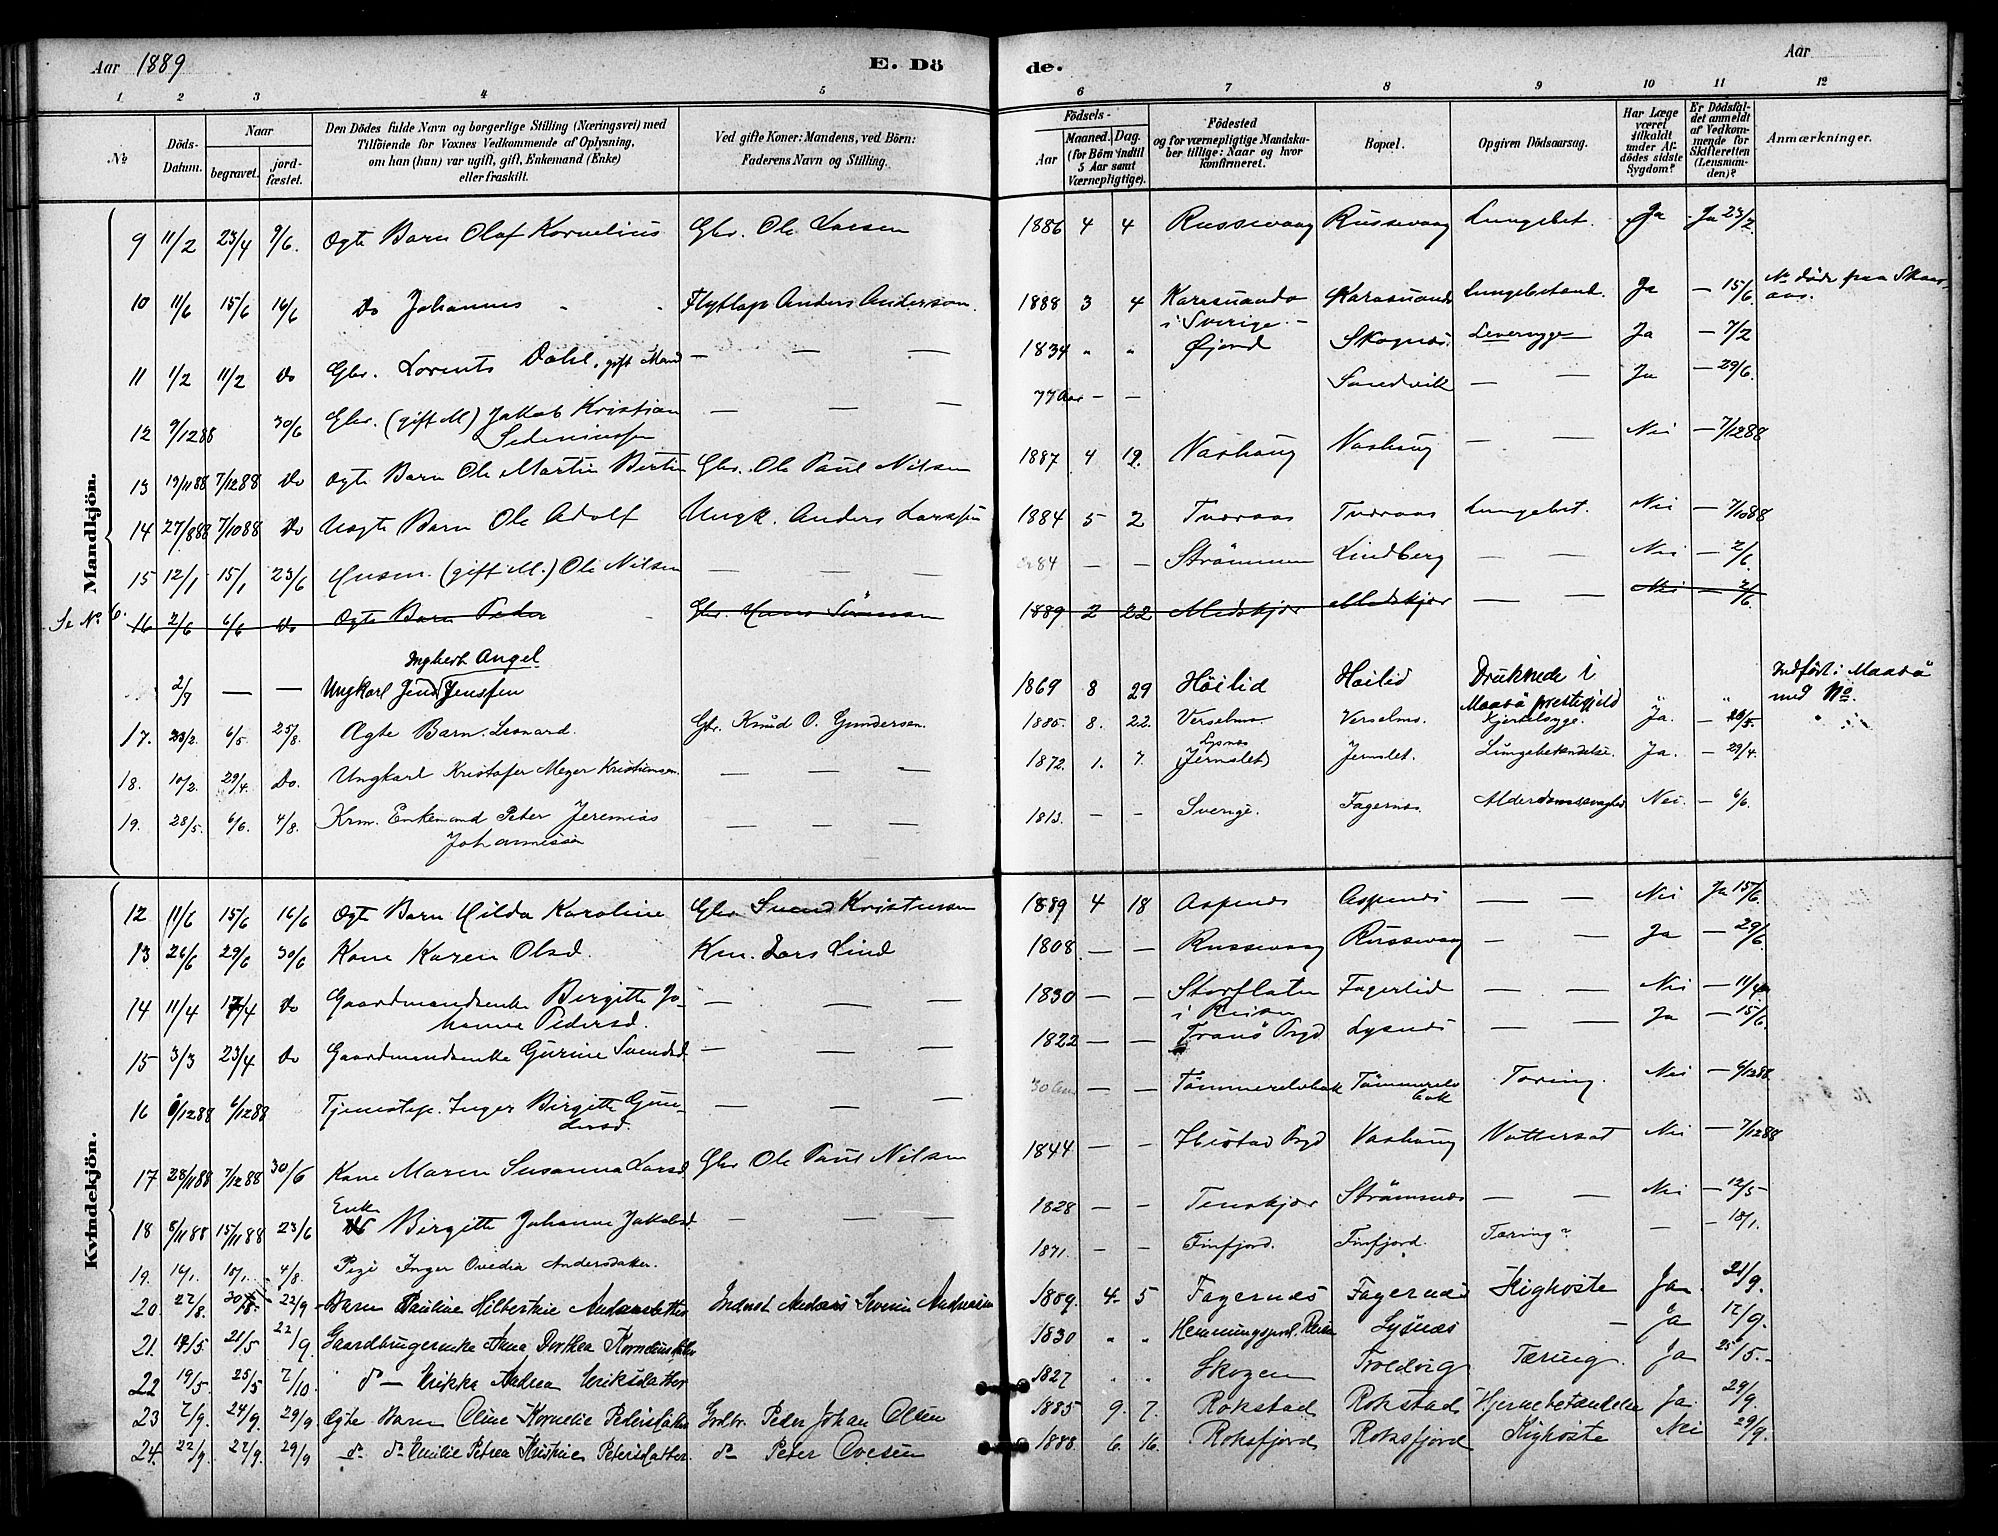 Aar 1889 E. Dö de. Aar
1 2 3 4 5 6 7 8 9 10 11 12
No Döds-Datum. Naar begravet. jord-fæstet. Den Dödes fulde Navn og borgerlige Stilling (Næringsvei) med Tilföiende for Voxnes Vedkommende af Oplysning, om han (hun) var ugift, gift, Enkemand (Enke) eller fraskilt. Ved gifte Koner: Mandens, ved Börn: Faderens Navn og Stilling. Födsels- Aar Maaned. Dag. (for Börn indtil 5 Aar samt Værnepligtige). Födested og for værnepligtige Mandskaber tillige: Naar og hvor konfirmeret. Bopæl. Opgiven Dödsaarsag. Har Læge været tilkaldt under Afdödes sidste Sygdom? Er Dödsfaldet anmeldt af Vedkommende for Skifteretten (Lensmanden)? Anmærkninger.
Mandkjön.
9 11/2 23/4 9/6. Ægte Barn Olaf Kornelius Gbr. Ole Larsen 1886 4 4 Russevaag Russevaag Lungebet. Ja Ja 23/2
10 11/6 15/6 16/6 Do Johannes Flytlap Anders Anderson. 1888 3 4 Karesuando i Sverige Karesuando Lungebetænd. Ja — 15/6.
11 1/2 11/2 Do Gbr. Lorents Dahl, gift Mand — — — 1834 " " Øjord Skognes Leversyge Ja — 7/2
12 9/12 88 30/6 Gbr. (gift M) Jakob Kristian — — — 77 Aar — — Sandvik — — Ja — 29/6.
13 19/11 88 7/12 88 Do Ægte Barn Ole Martin Bertin Gbr. Ole Paul Nilsen 1887 4 19. Vashaug Vashaug — — Nei — 7/12 88
14 27/8 88 7/10 88 Do Uægte Barn Ole Adolf Ungk. Anders Larssen 1884 5 2 Tveraas Tveraas Lungebet. Nei — 7/10 88
15 12/1 15/1 23/6 Husm. (gift M.) Ole Nilsen — — — 84 — — Strømmen Lindberg — — Nei — 2/6.
Se No 6. 16 2/6 6/6 Do Ægte Barn Peder Gbr. Hans 1889 2 22 Medskjær Medskjær — — Nei — 2/6.
2/7 — — Ungkarl Jens Ingbert Angel Jenssen 1869 8 29 Høilid Høilid Druknede i Maasø prestegjeld " " Indført i Maasø med No
17. 23/2. 6/5 25/8. Ægte Barn Leonard. Gbr. Knud O. Gundersen. 1885. 8. 22. Verselmo. Verselmo. Kjertelsyge. Ja. — 29/5.
18. 10/2. 29/4. Do. Ungkarl Kristofer Meyer Kristiansen. — — — 1872. 1. 7. Lysnes Jernslet Jernslet. Lungebetændelse. Ja. — 29/4.
19. 28/5. 6/6. 4/8. Krm. Enkemand Peter Jeremias Johannissen — — — 1813. — — Sverige. Fagernes. Alderdomssvaghed Nei. — 6/6.
Kvindekjön.
12 11/6 15/6 16/6 Ægte Barn Hilda Karoline Gbr Svend Kristensen 1889 4 18 Aspenes Aspenes — — Nei Ja 15/6.
13 26/6 29/6 30/6 Kone Karen Olsd. Km. Lars Lind 1808 — — Russevaag Russevaag — — Ja — 29/6.
14 11/4 17/4 Do Gaardmandsenke Birgitte Johanna Pedersd. — — — 1830 — — Storslaten i Reisen Fagerlid — — Nei — 11/4
15 3/3 23/4 Do Gaardmandsenke Gurine Svendsd. — — — 1822 — — Tranø Prgd Lysnes — — Ja — 15/6.
16 6/12 88 6/12 88 Tjenestep. Inger Birgitte Gundersd. — — — 30 Aar — — Tømmerelvbak Tømmerelvbak Tæring. Nei — 6/12 88.
17 28/11 88 7/12 88 30/6 Kone Maren Susanna Larsd. Gbr Ole Paul Nilsen 1844 — — Ibestad Prgd Vashaug Vattersot Nei — 7/12 88
18 8/11 88 15/11 88 23/6 Enke Birgitte Johanne Jakobsd. — — — 1828 — — Tenskjær Strømsnes — — Nei — 12/5
19. 16/1. 18/1. 4/8. Pige Inger Ovedia Andersdatter. 1871. — — Finfjord. Finfjord. Tæring? — — 18/1.
20. 22/8. 30/8. 22/9 Barn Pauline Hilbertine Andreasdatter Inderst Andreas Severin Andreasen 1889. 4. 5 Fagernes Fagernes Kighoste Ja. 21/9.
21. 12/5. 21/5 22/9. Gaardbrugerenke Anna Dorthea Korneliusdatter 1830 " " Hemmingsjord. Reisen Lysnæs — Ja 12/9.
22 19/5. 25/5 7/10. do — Erikka Andrea Eriksdatter 1827 " " Skogen Troldvig Tæring. Ja 25/5.
23 2/9. 24/9. 29/9 Ægte Barn Oline Kornelie Pedersdatter Grdbr. Peter Johan Olsen 1885 9. 7. Rokstad Rokstad Hjernebetændelse Ja. 29/9.
24. 22/9. 27/9. 29/9 do do Emilie Petrea Kristine Petersdatter. do Peter Ovesen 1888. 6. 16. Roksfjord Roksfjord Kighoste Nei 29/9.